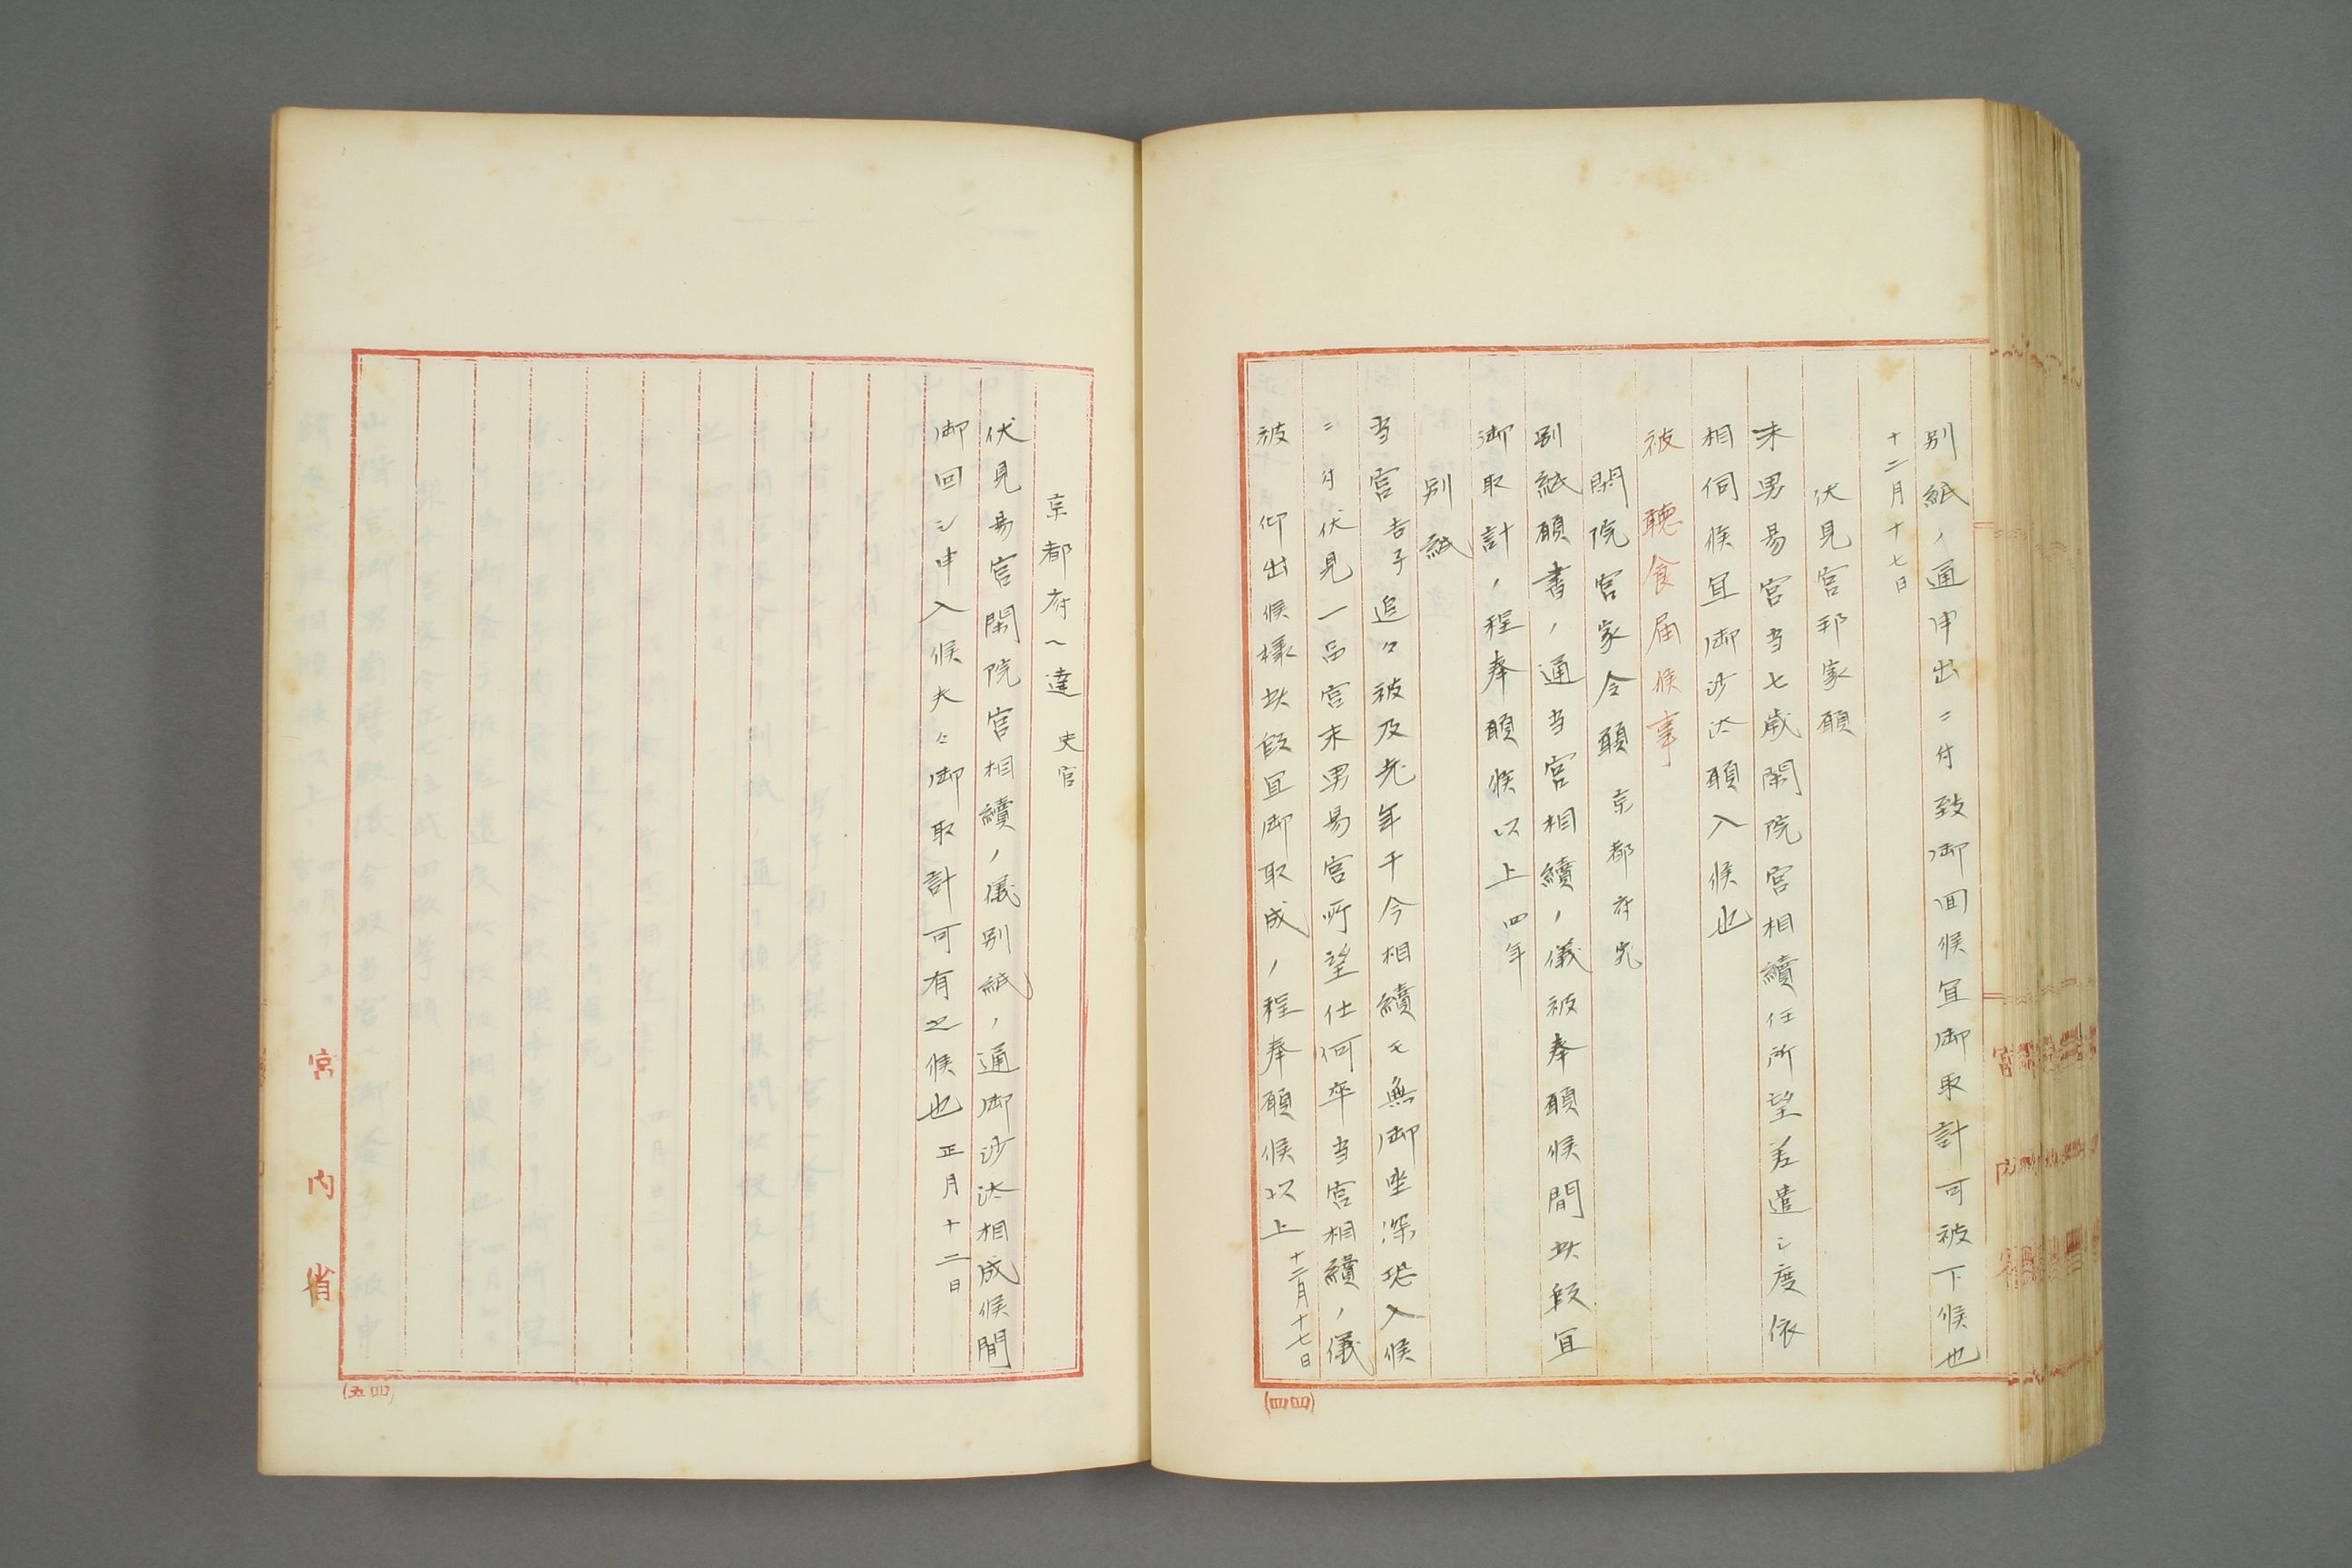 別紙ノ通申出ニ付致御囬候宜御取計可被下候也
十二月十七日
伏見宮邦家願
末男易宮当七歳閑院宮相續任所望差遣シ度依
相伺候宜御沙汰頼入候也
被聴食届候事
閑院宮家令願 京都府宛
別紙願書ノ通当宮相續ノ儀被奉願候間此段宜
御取計ノ程奉願候以上 四年
別紙
当宮吉子追々被及老年于今相續モ無御坐深恐入候
ニ付伏見一品宮末男易宮所望仕何卒当宮相續ノ儀
被仰出候様此段宜御取成ノ程奉願候以上 十二月十七日
(四四)
京都府ヘ達 史官
伏見易宮閑院宮相續ノ儀別紙ノ通御沙汰相成候間
御回シ申入候夫々御取計可有之候也 正月十二日
宮内省
(四五)